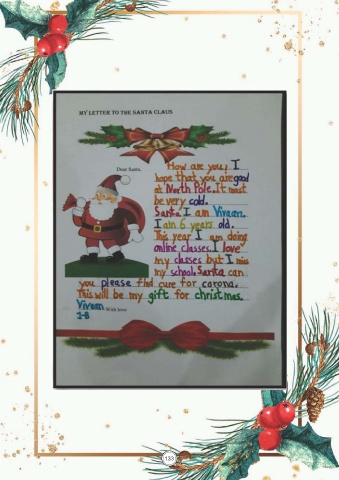 MY LETTER TO THE SANTA CLAUS
Dear Santa,
How are you? I
hope that you are good
at North Pole. It must
be very cold.
Santa I am Vivaan.
I am 6 years old.
This year I am doing
online classes. I love
my classes but I miss
my school. Santa can
you please find cure for corona.
This will be my gift for christmas.
Vivaan With love
1-B
133